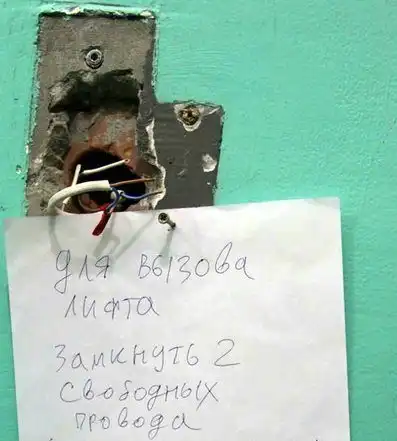 Для вызова
лифта
Замкнуть 2
свободных
провода